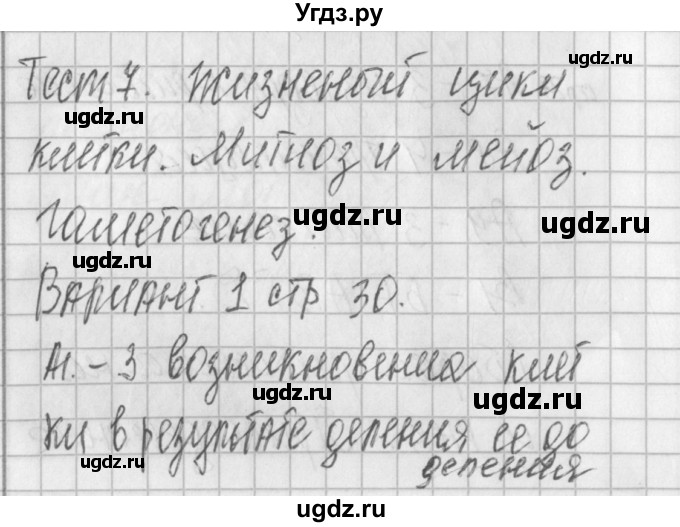 Угдз.ру
ugdz.ru
Тест 7. Жизненый цикл
ugdz.ru
клетки. Митоз и мейоз.
ugdz.ru
Гаметогенез.
ugdz.ru
ugdz.ru
ugdz.ru
Вариант 1 стр 30.
А1. - 3 возникновения клет
ugdz.ru
ugdz.ru
ки в результате деления ее до
ugdz.ru
деления
ugdz.ru
ugdz.ru